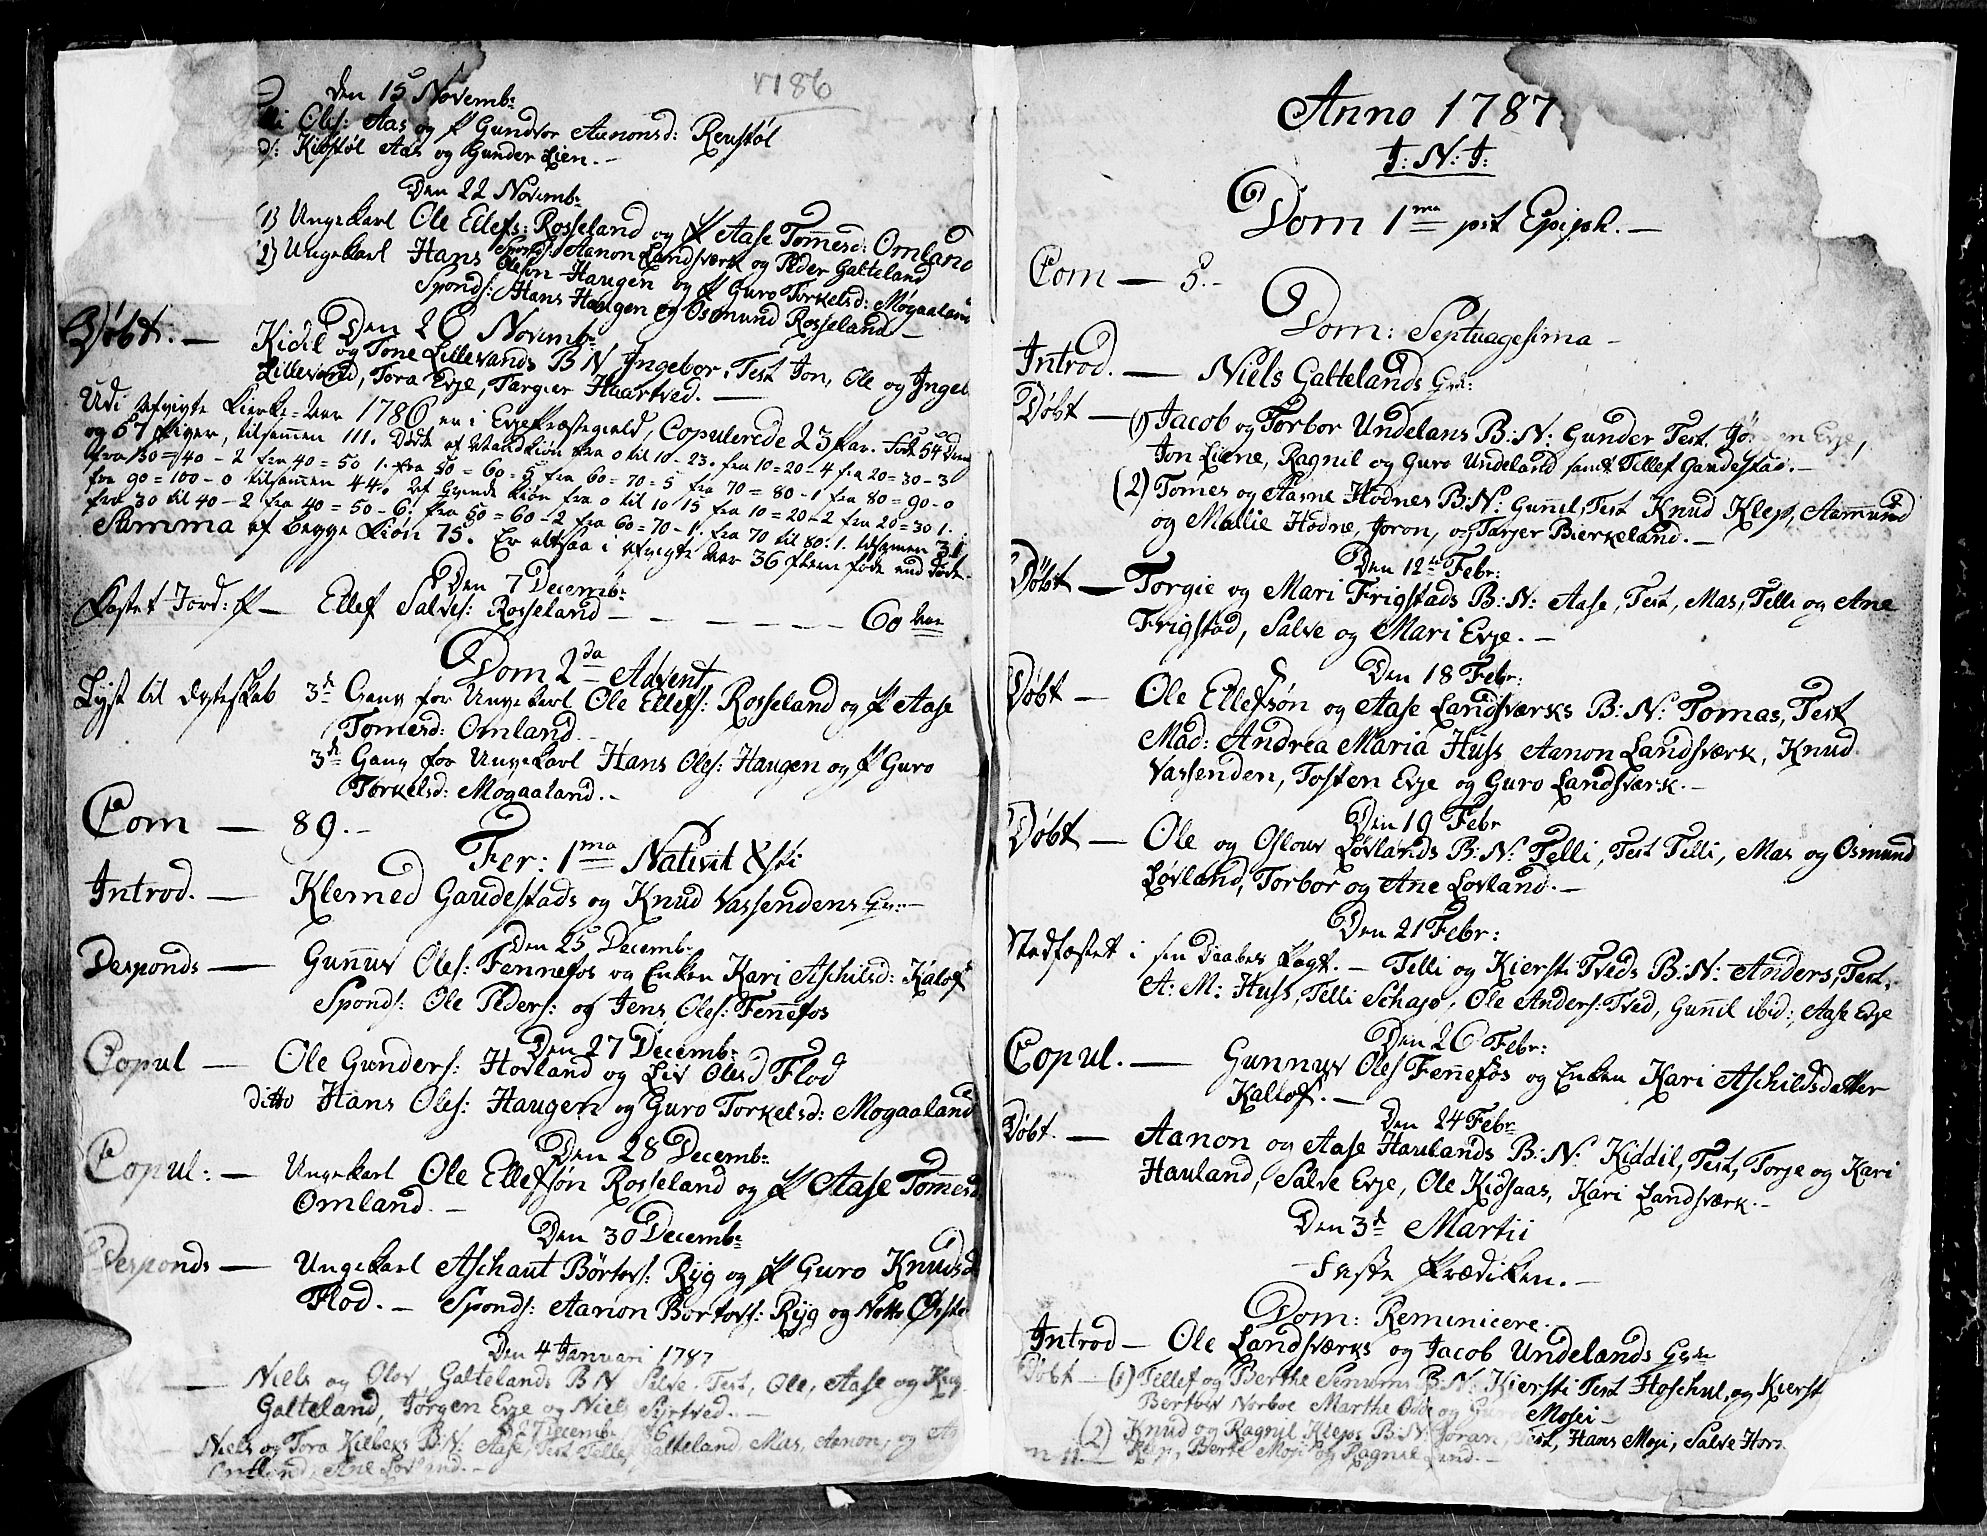 1786
Den 15 Novemb:
Ols: Aas og P Gundvor Aanonsd: Reustøl
Kibstøl Aas og Gunder Lien. -
Den 22 Novemb:
(1) Ungekarl Ole Ellefs: Rosseland og P Aase Tom̄esd: Omland
Sponds: Aanon Landsværk og Peder Galteland
(2) Ungekarl Hans Olesøn Haugen og P Guro Torkelsd: Mogaaland
Sponds: Hans Haugen og Osmund Rosseland -
Den 26 Novemb:
Døbt. - Kidil og Tone Lillevands B N Ingebor. Test Jon, Ole og Ingeb
Lillevand, Tora Evje, Targier Haartved. -
Udi afvigte Kierke-Aar 1786 er i Evje Præstegield, Copulerede 23 Par. Født 54 Drenge
og 57 Piger, tilsam̄en 111. Døde af Mandkiøn fra 0 til 10 - 23. fra 10 = 20 - 4 fra 20 = 30 - 3
fra 30 = 40 - 2 fra 40 = 50 1. fra 50 = 60 - 5 fra 60 = 70 - 5 fra 70 = 80 - 1 fra 80 = 90 - 0
fra 90 = 100 - 0 tilsam̄en 44. Af Qvindekiøn fra 0 til 10 15 fra 10 = 20 - 2 fra 20 = 30 1.
fra 30 til 40 - 2 fra 40 = 50 - 6. fra 50 = 60 - 2 fra 60 = 70 - 1. fra 70 til 80. 1. tilsam̄en 31
Summa af begge Kiøn 75. Er altsaa i afvigte Aar 36 fleere føde end døde.
Den 7 Decemb:
Fæstet Jord: P - Ellef Salves: Rosseland - - - - - - 60 Aar
Dom 2da Advent
Lyst til Ægteskab 3de Gang for Ungekarl Ole Ellefs: Rosseland og P Aase
Tom̄esd: Omland. -
3de Gang for Ungekarl Hans Oles: Haugen og P Guro
Torkelsd: Mogaaland. -
Com - 89. -
Fer: 1ma Nativit Xsti
Introd. - Klemed Gaudestads og Knud Vassendens Qv: -
Den 25 Decemb:
Desponds - Gun̄uv Oles: Fennefos og Enken Kari Aschilsd: Kalof
Sponds: Ole Peders: og Jens Oles: Fen̄efos
Den 27 Decemb:
Copul - Ole Gunders: Hovland og Liv Olesd Flod
ditto Hans Oles: Haugen og Guro Torkelsd: Mogaaland
Den 28 Decemb:
Copul: - Ungekarl Ole Ellefsøn Rosseland og P Aase Tom̄esd
Omland. -
Den 30 Decemb:
Desponds - Ungekarl Aschaut Børtors: Ryg og P Guro Knudsd
Flod. - Sponds: Aanon Bortors: Ryg og
Den 4 Januari 1787
- Niels og Olov Galtelands B N Salve. Test, Ole, Aase og
Galteland, Jørgen Evje og Niels Syrtved. -
Den 27 Decemb. 1786
Niels og Tora Kilbers B: N: Aase, Test Tellef Galteland Mas, Aanon, og
Omland, Ane Lovland. -
Anno 1787
I: N: I:
Dom 1ma post Epiph. -
Com - 5. -
Dom: Septuagesima -
Introd. - Niels Galtelands Qv:
Døbt - (1) Jacob og Torbor Undelans B: N: Gunder Test, Jørgen Evje,
Jon Liene, Ragnil og Guro Undeland samt Tellef Gaudestad. -
(2) Tom̄es og Aasne Hodnes B: N: Gun̄il, Test Knud Klep, Aamund
og Mallie Hodne, Joron, og Tarjer Bierkeland. -
Den 12te Febr:
Døbt - Torgie og Mari Frigstads B: N: Aase, Test, Mas, Telli og Ane
Frigstad, Salve og Mari Evje. -
Den 18 Febr:
Døbt - Ole Ellefsøn og Aase Landsværks B: N: Tomas, Test
Mad: Andrea Maria Huss Aanon Landsværk, Knud
Vassenden, Tosten Evje og Guro Landsværk. -
Den 19 Febr
Døbt - Ole og Olouv Løvlands B: N: Telli, Test Telli, Mas og Osmund
Løvland, Torbor og Ane Lovland. -
Den 21 Febr:
Stadfæstet i sin Daabes Pagt. - Telli og Kiersti Tveds B: N: Anders, Test,
A: M: Huss, Telli Schajo, Ole Anders: Tved, Gun̄il ibid:, Aase Evje
Den 26 Febr:
Copul. - Gunnuv Oles Fen̄efos og Enken Kari Aschildsdatter
Kallof. -
Den 24 Febr
Døbt. - Aanon og Aase Haulands B: N: Kiddil, Test, Torje og Kari
Hauland, Salve Evje, Ole Kidsaas, Kari Landsværk. -
Den 3de Martii
- Faste Prædiken. -
Dom: Reminicere. -
Introd - Ole Landsværks og Jacob Undelands Qvr
Døbt - (1) Tellef og Berthe Senums B: N: Kiersti Test Hoschul, og Kierst
Berthev Norboe Marthe Odde og Guro Mosei -
(2) Knud og Ragnil Kleps B: N: Joran, Test, Hans Mosi, Salve Horn
Klep, Berte Mosi og Ragnil -